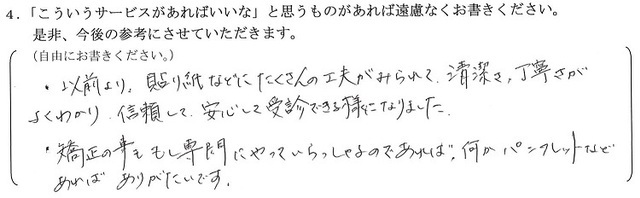 4．「こういうサービスがあればいいな」と思うものがあれば遠慮なくお書きください。
是非、今後の参考にさせていただきます。
（自由にお書きください。）
・以前より、貼り紙などにたくさんの工夫がみられて、清潔さ、丁寧さが
よくわかり、信頼して、安心して受診できる様になりました。
・矯正の事も もし専門にやっていらっしゃるのであれば、何かパンフレットなど
あれば ありがたいです。